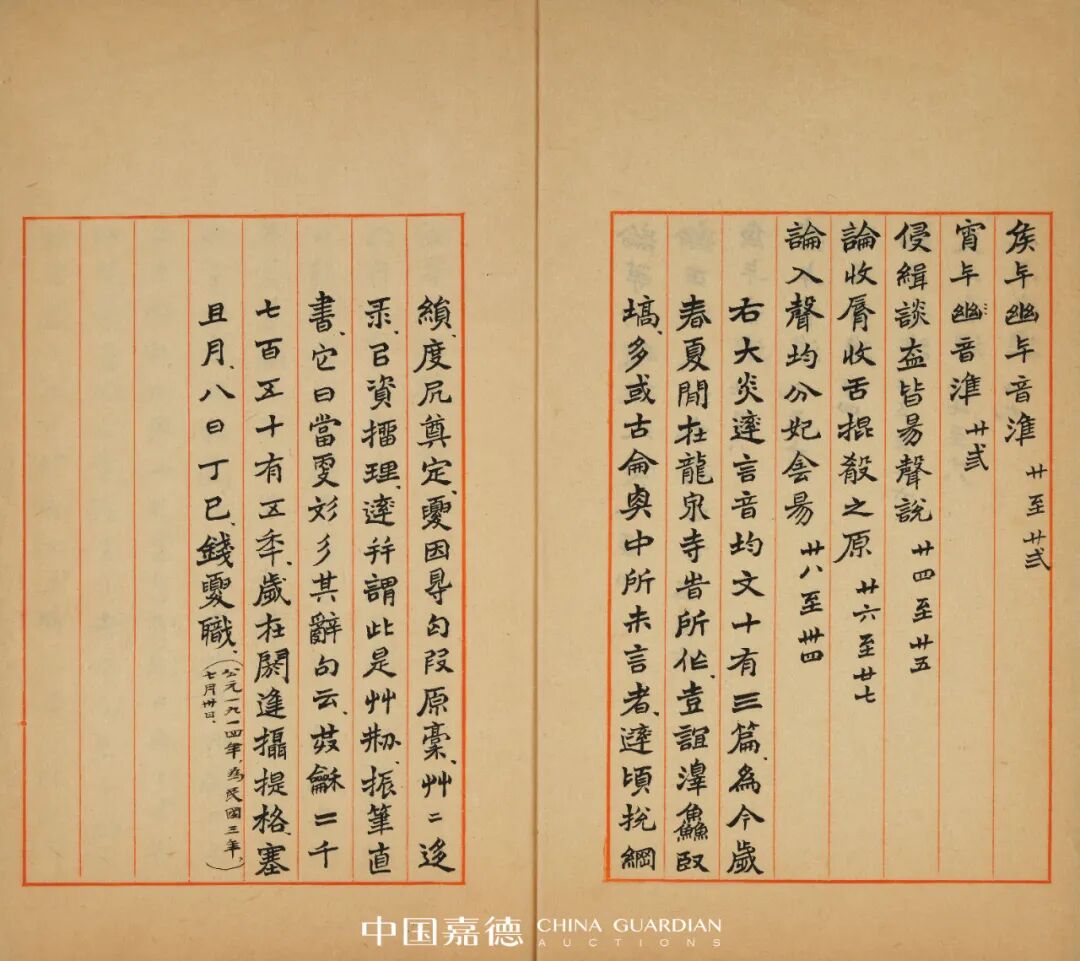 矦与幽与音準 廿至廿弍
宵与幽音準 廿弍
侵緝談盍皆昜聲說 廿四至廿五
論收脣收舌掍殽之原 廿六至廿七
論入聲均分妃侌昜 廿八至卅四
右大炎達言音均文十有三篇、爲今歲
春夏閒在龍泉寺旹所作、壹誼鱻臤
塙、多或古侖奥中所未言者、達頃挩綱
縝、度凥奠定、夓因㝵匄叚原稾、艸二迻
录、㠯資擂理、達并謂此是艸剏、振筆直
書、它日當其辭句云、龢二千
七百五十有五秊、歲在閼逢攝提格、塞
且月、八日丁巳、錢夓職、
(公元一九一四年、為民國三年、
七月卅日、)
中国嘉德 CHINA GUARDIAN
AUCTIONS